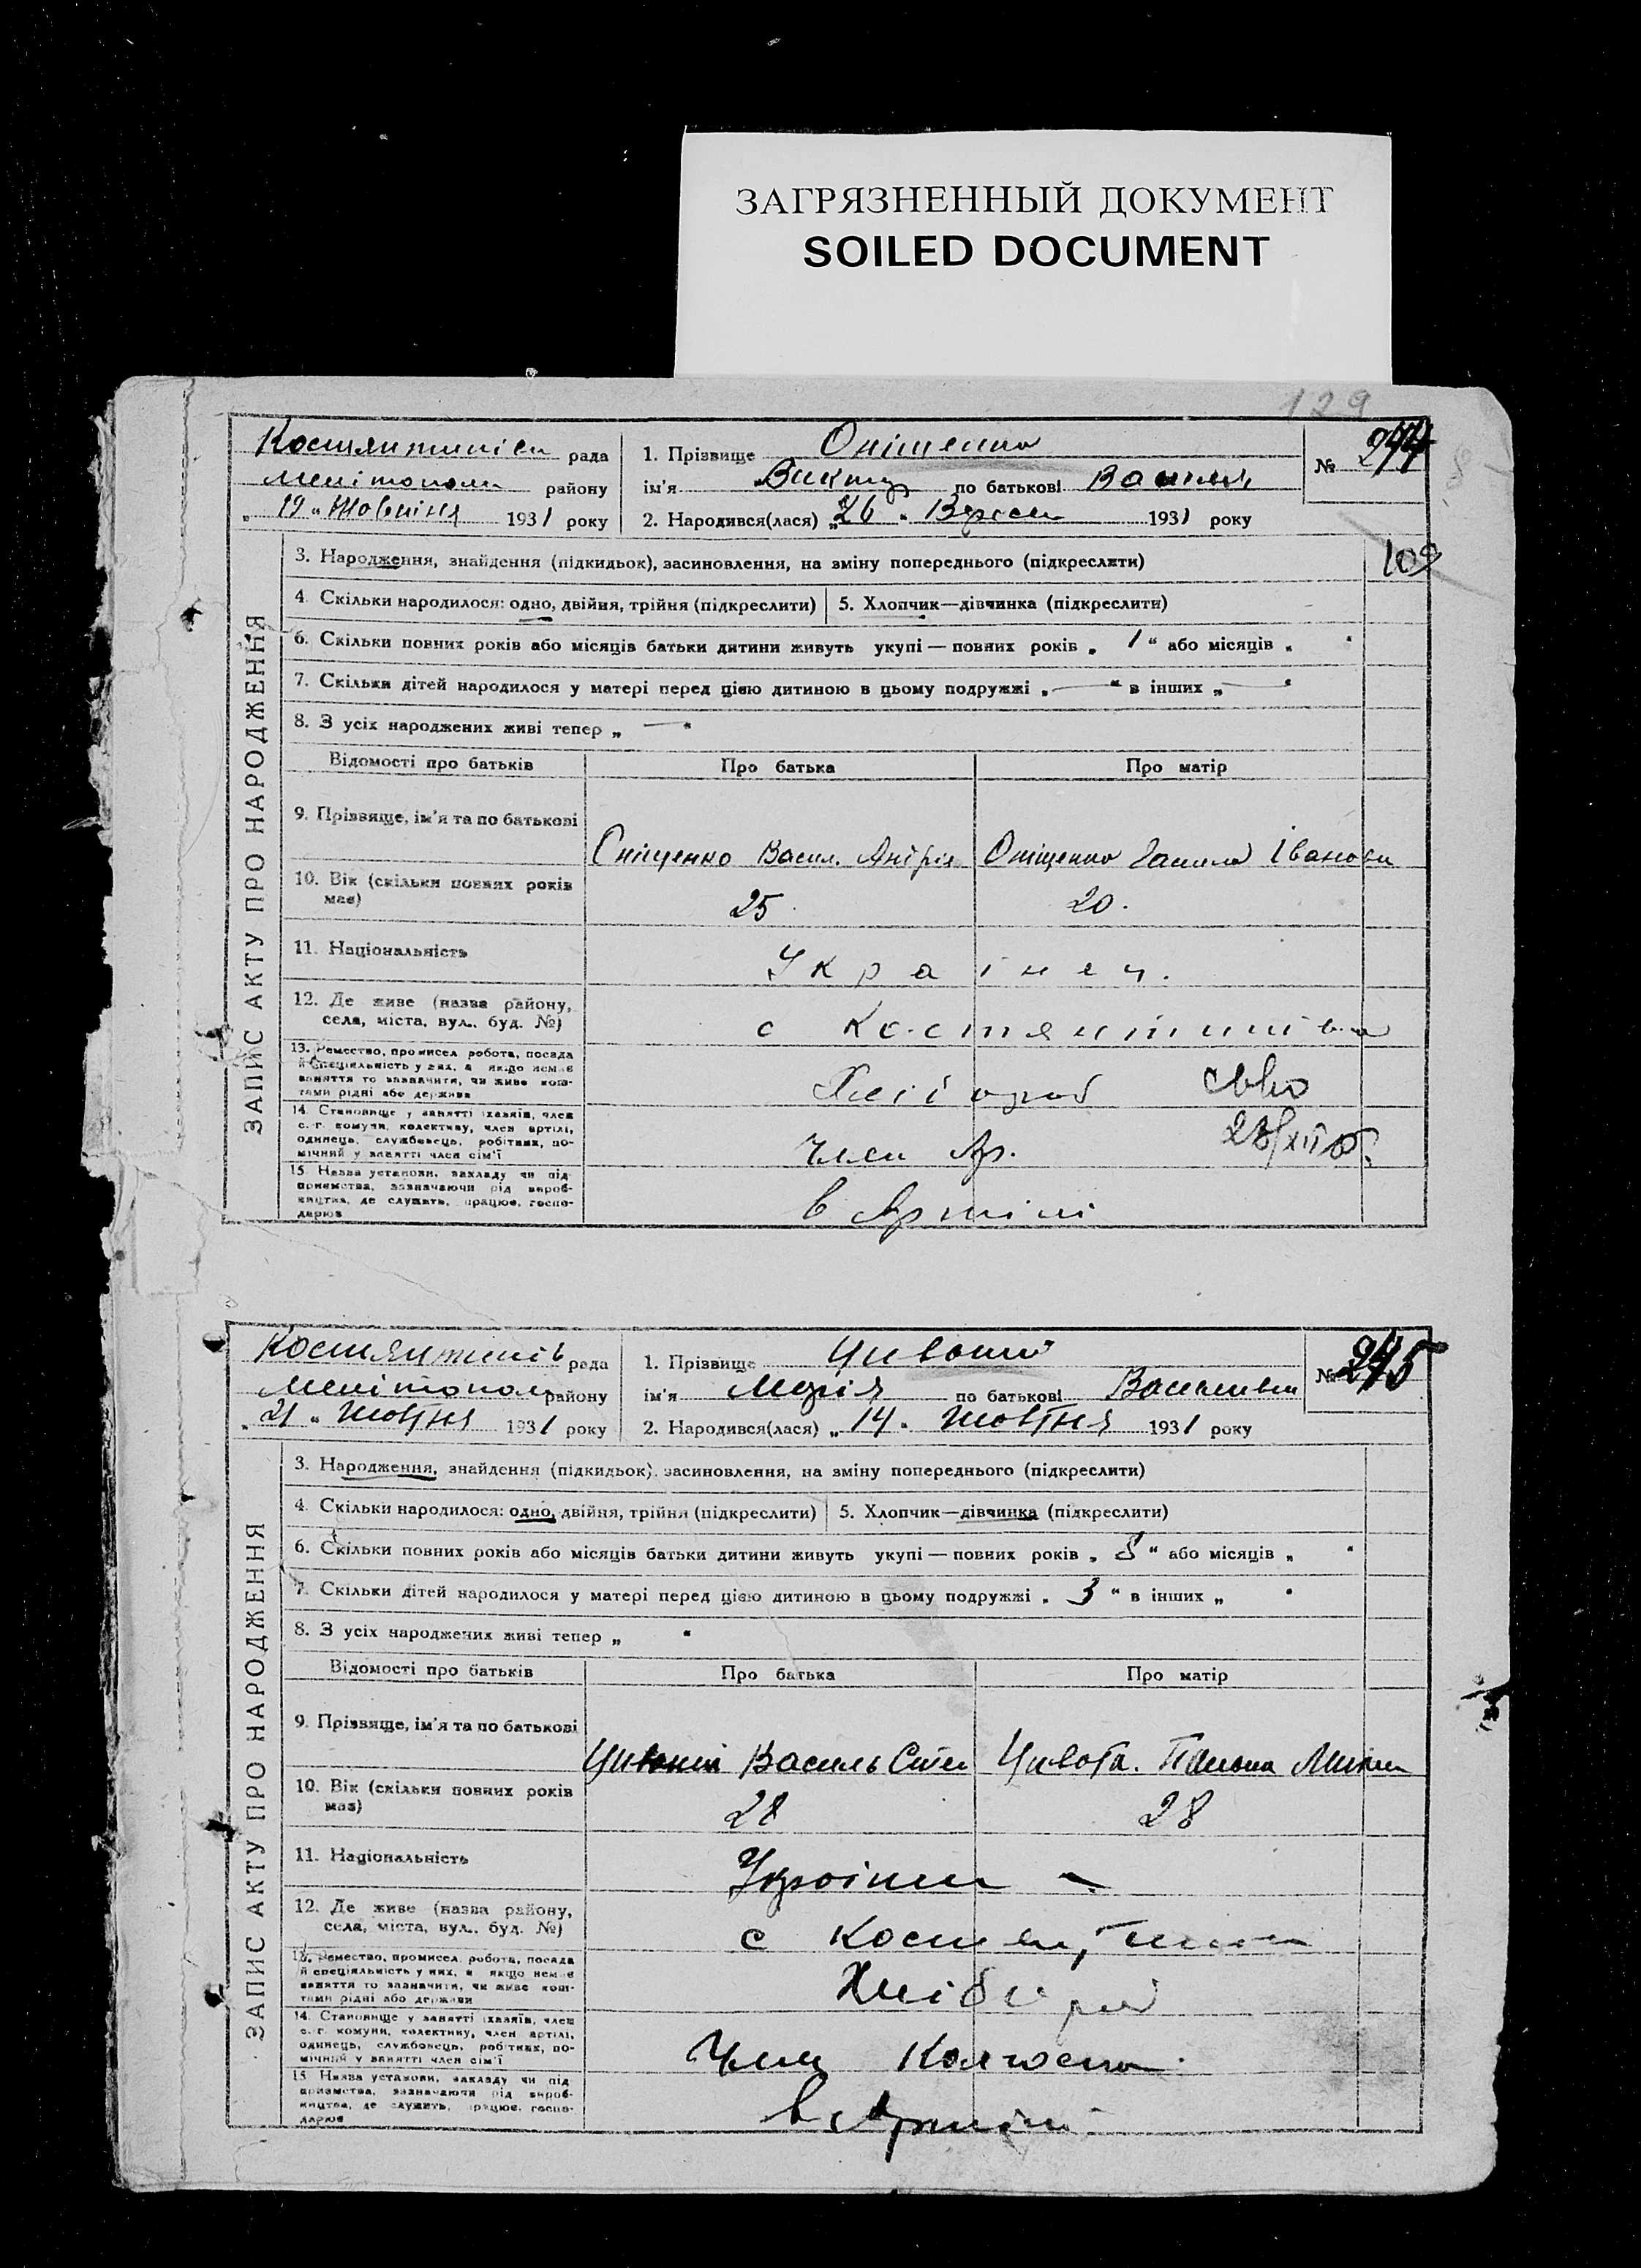 ЗАГРЯЗНЕННЫЙ ДОКУМЕНТ
SOILED DOCUMENT
129
рада
1. Прізвище Оніщенко
№ 244
району
ім'я Виктор по батькові
„19“ Жовтня 1931 року
2. Народився(лася) „26“ 1931 року
109
ЗАПИС АКТУ ПРО НАРОДЖЕННЯ
3. Народження, знайдення (підкидьок), засиновлення, на зміну попереднього (підкреслити)
4. Скільки народилося: одно, двійня, трійня (підкреслити)
5. Хлопчик—дівчинка (підкреслити)
6. Скільки повних років або місяців батьки дитини живуть укупі — повних років „1“ або місяців „ “
7. Скільки дітей народилося у матері перед цією дитиною в цьому подружжі „—“ в інших „—“
8. З усіх народжених живі тепер „—“
Відомості про батьків
Про батька
Про матір
9. Прізвище, ім'я та по батькові
Оніщенко Васил. Андрія
Оніщенко Іванови
10. Вік (скільки повних років
має)
25
20.
11. Національність
Українец.
12. Де живе (назва району,
села, міста, вул., буд. №)
с Костянтинівка
13. Ремество, промисел робота, посада
й спеціяльність у них, а якщо немає
заняття то зазначити, чи живе кош-
тами рідні або держави
14. Становище у занятті (хазяїн, член
с.-г. комуни, колективу, член артілі,
одинець, службовець, робітник, по-
мічний у занятті член сім'ї
член Ар.
15. Назва установи, закладу чи під-
приємства, зазначаючи рід вироб-
ництва, де служить, працює, госпо-
дарює
в Артілі
рада
1. Прізвище
№ 245
району
ім'я Марія по батькові
„21“ жовтня 1931 року
2. Народився(лася) „14“ жовтня 1931 року
ЗАПИС АКТУ ПРО НАРОДЖЕННЯ
3. Народження, знайдення (підкидьок), засиновлення, на зміну попереднього (підкреслити)
4. Скільки народилося: одно, двійня, трійня (підкреслити)
5. Хлопчик—дівчинка (підкреслити)
6. Скільки повних років або місяців батьки дитини живуть укупі — повних років „8“ або місяців „ “
7. Скільки дітей народилося у матері перед цією дитиною в цьому подружжі „3“ в інших „ “
8. З усіх народжених живі тепер „ “
Відомості про батьків
Про батька
Про матір
9. Прізвище, ім'я та по батькові
Василь
10. Вік (скільки повних років
має)
28
28
11. Національність
12. Де живе (назва району,
села, міста, вул., буд. №)
с
13. Ремество, промисел робота, посада
й спеціяльність у них, а якщо немає
заняття то зазначити, чи живе кош-
тами рідні або держави
Хлібороб
14. Становище у занятті (хазяїн, член
с.-г. комуни, колективу, член артілі,
одинець, службовець, робітник, по-
мічний у занятті член сім'ї
Член
15. Назва установи, закладу чи під-
приємства, зазначаючи рід вироб-
ництва, де служить, працює, госпо-
дарює
в Артілі